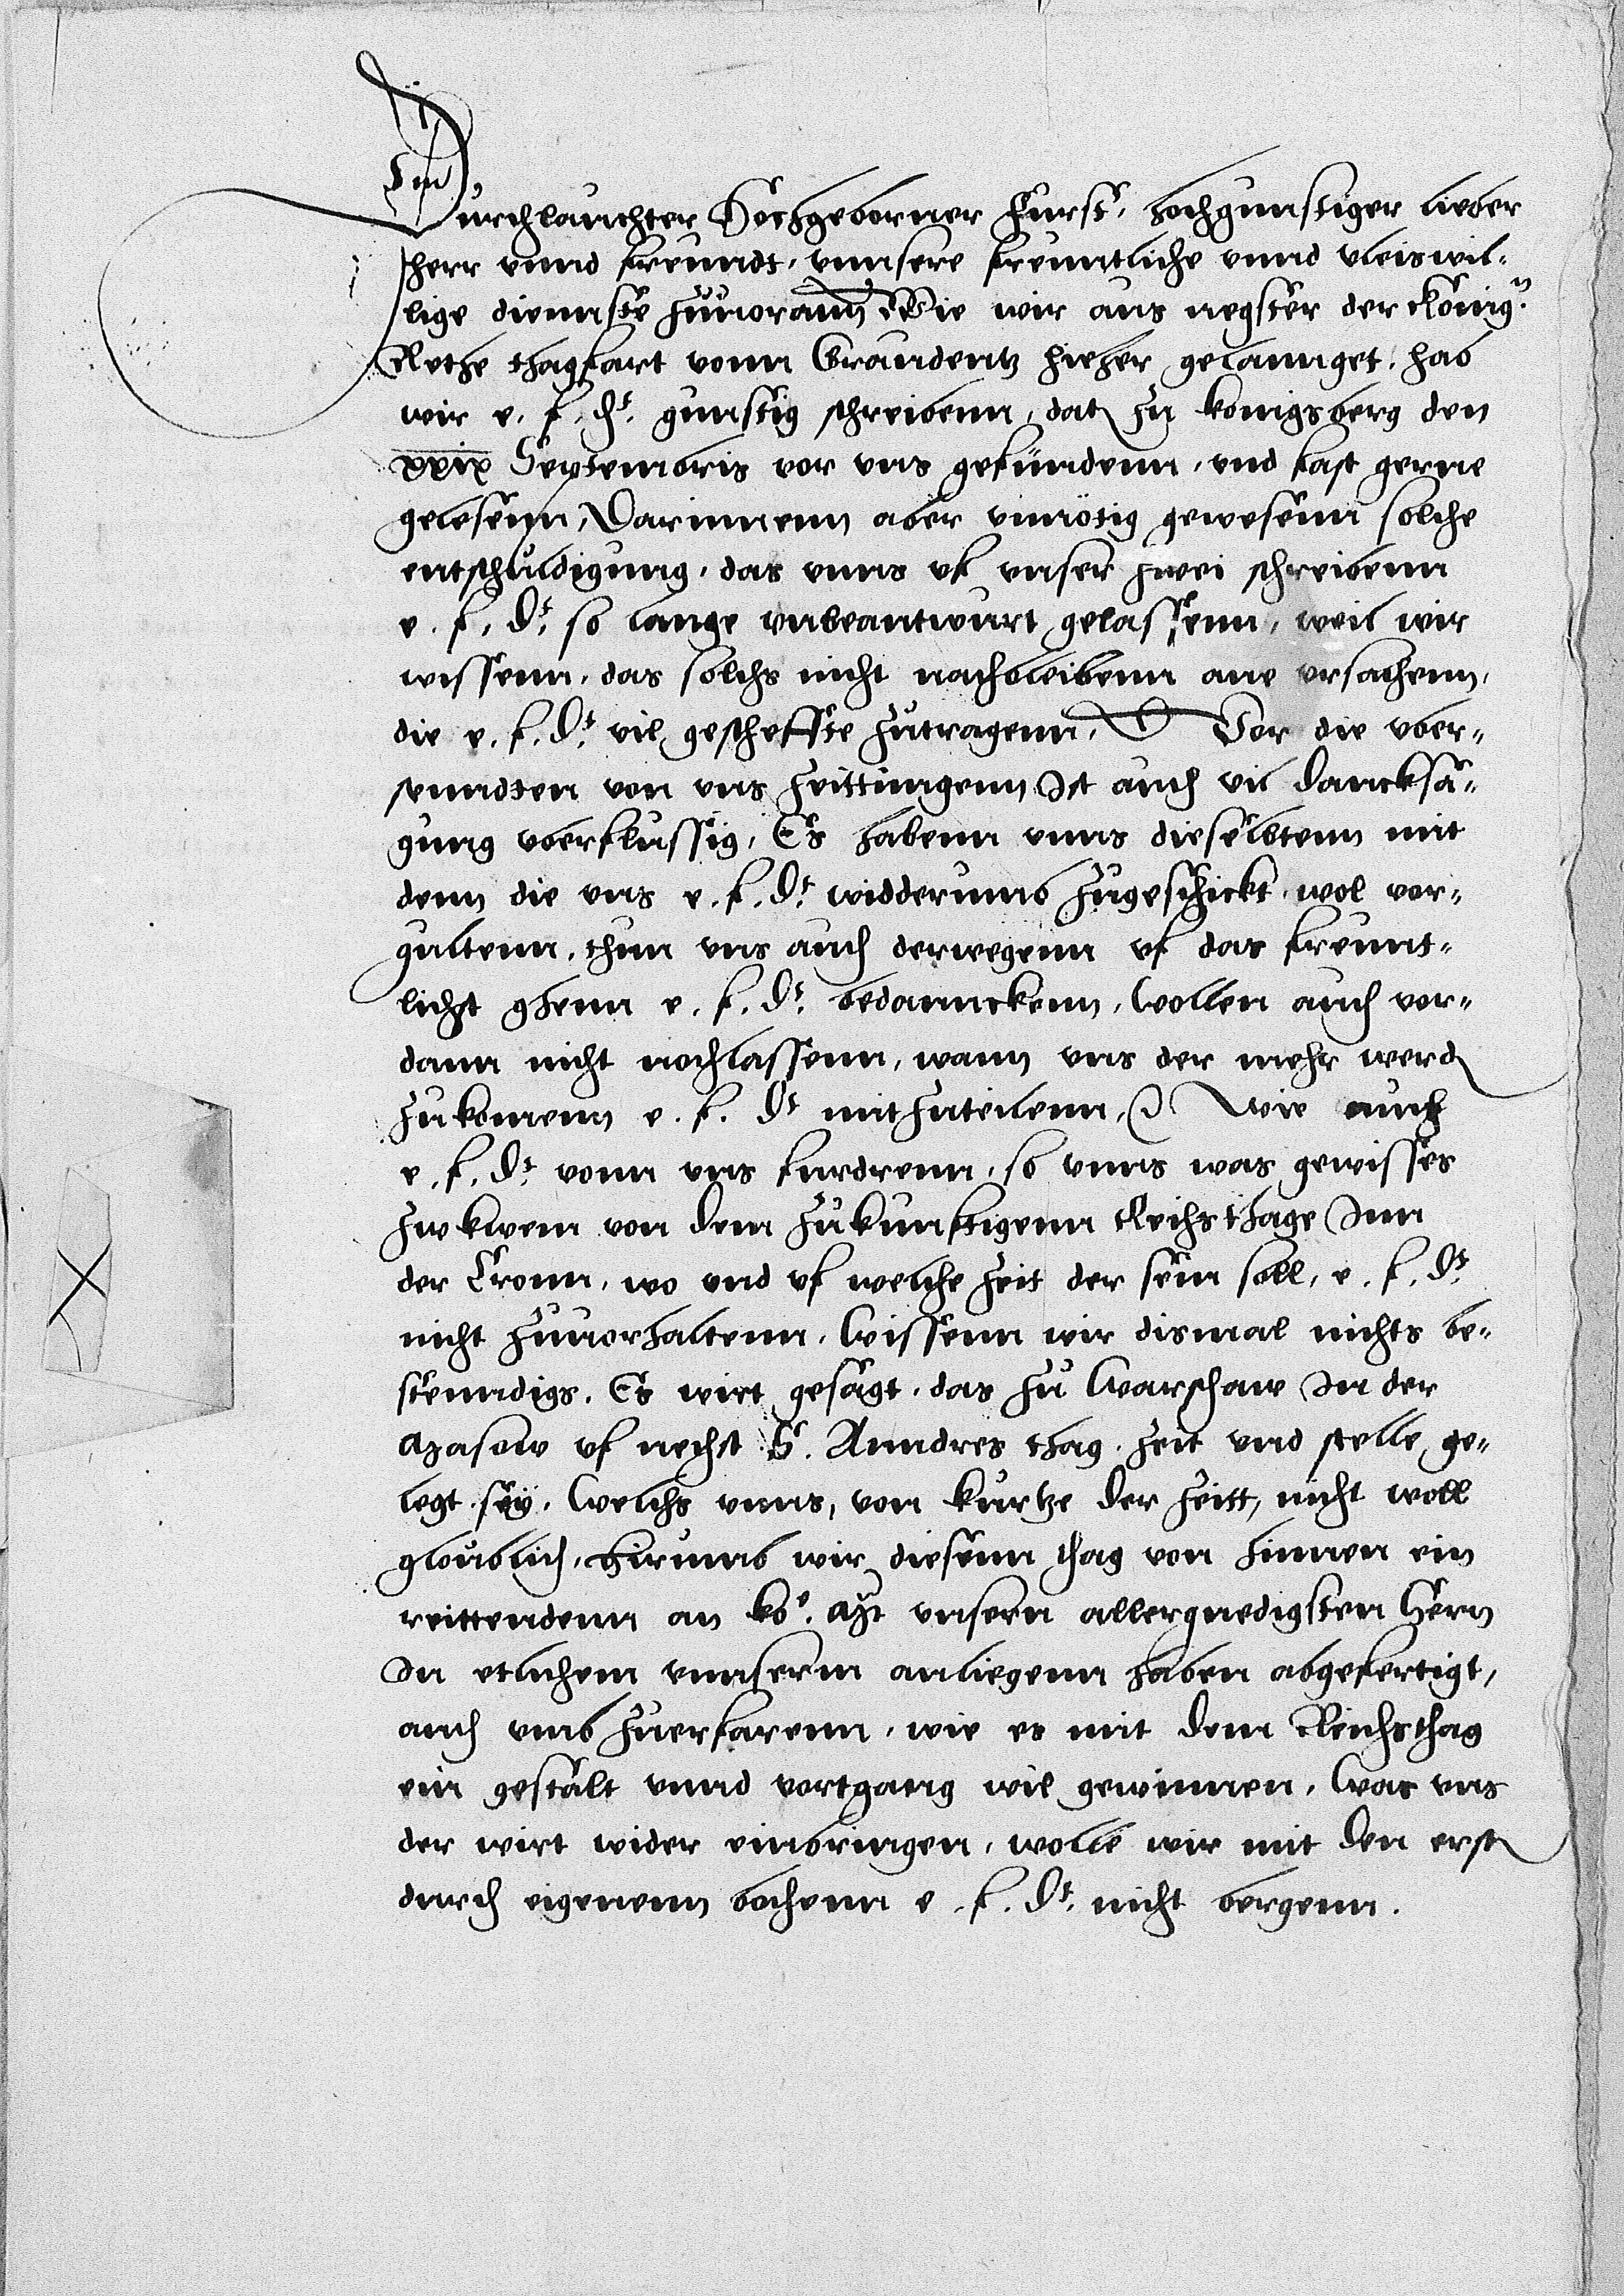 Durchlauchter Hochgeborner Furst, hochgunstiger lieber
herr unnd freundt, unnsere freuntliche unnd vleiswil-
lige diennste zuuorann, Wie wir aus negster der König.
Rethe thagfart vonn Graudentz hieher gelannget, hab
wir e. f. d. gunstig schreibenn, dat zu konigsberg den
xxix Septembris vor uns gefundenn, und fast gerne
gelesenn, Darinnenn aber unnötig gewesenn solche
entschuldigung, das unns uf unser zwei schreibenn
e. f. d. so lange unbeantwurt gelassenn, weil wir
wissenn, das solchs nicht nachbleibenn ane ursachenn,
die e. f. d. vil gescheffte zutragenn. Vor die uber-
senndten von uns Zeittungenn Ist auch vil dancksa-
gung uberflussig, Es habenn unns dieselbtenn mit
denn die uns e. f. d. widderumb zugeschickt, wol vor-
gultenn, thun uns auch derwegenn uf das freunt-
lichst ghenn e. f. d. bedannckenn, Wollen auch vor-
dann nicht nochlassenn, wann uns der mehr werd
zukomenn e. f. d. mitzuteilenn, Wie auch
e. f. d. vonn uns furdrenn, so unns was gewisses
zwkwem von dem zukunftigenn Reichsthage Inn
der Cronn, wo und uf welche zeit der sein soll, e. f. d.
nicht zuuorhaltenn, Wissenn wir dismal nichts be-
stenndigs. Es wirt gesagt, das zu Warschaw In der
Masow uf nechst S. Anndres thag zeit und stelle ge-
legt sey, Welchs unns, von kurtze der Zeitt, nicht woll
gloublich, Hirumb wir diesenn thag von hinnen ein
reittendenn an ko. Mt unsern allergnedigsten Hern
In etlichenn unnsernn anliegenn haben abgefertigt,
auch umb zuerfarenn, wie es mit dem Reichsthag
ein gestalt unnd vortgang wil gewinnen, Was uns
der wirt wider einbringen, wolle wir mit den erst
durch eigenenn bothenn e. f. d. nicht bergenn.